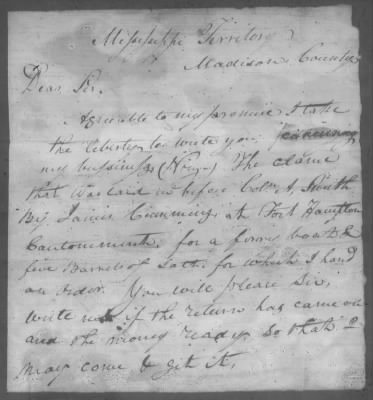 Missisippi Territory
Madison County
Dear Sir.
Agreable to my promise I take
the liberty to write you concirning
my bussiness The claime
that was laid in before Colo. A, Smith
By James Cumming at Fort Hampton
Cantonment, for a ferry boat &
five Barrels of Salt, for which I had
an order. You will please Sir,
write me if the return has came on
and the money ready So that I
may come & get it,